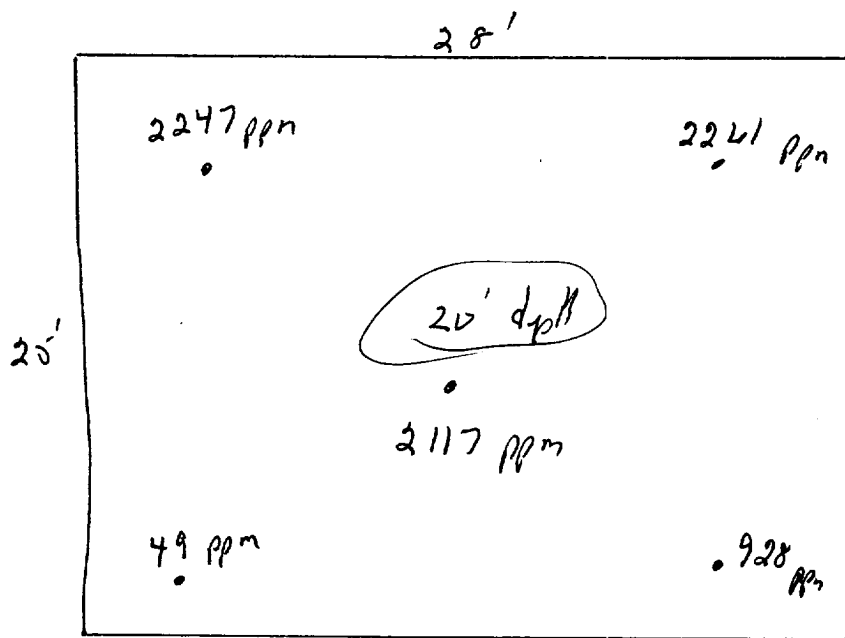 28'
2247 ppm
2241 ppm
20' dpth
2117 ppm
49 ppm
928 ppm